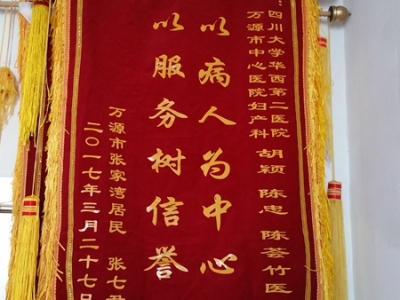 四川大学华西第二医院
万源市中心医院妇产科 胡颖 陈忠 陈荟竹 医
以病人为中心
以服务树信誉
万源市张家湾居民 张七
二〇一七年三月二十七日